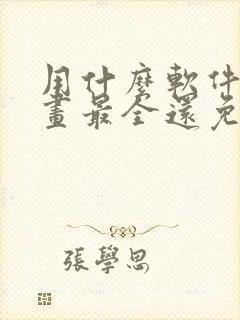 用什麼軟件
畫最全還免
張學思